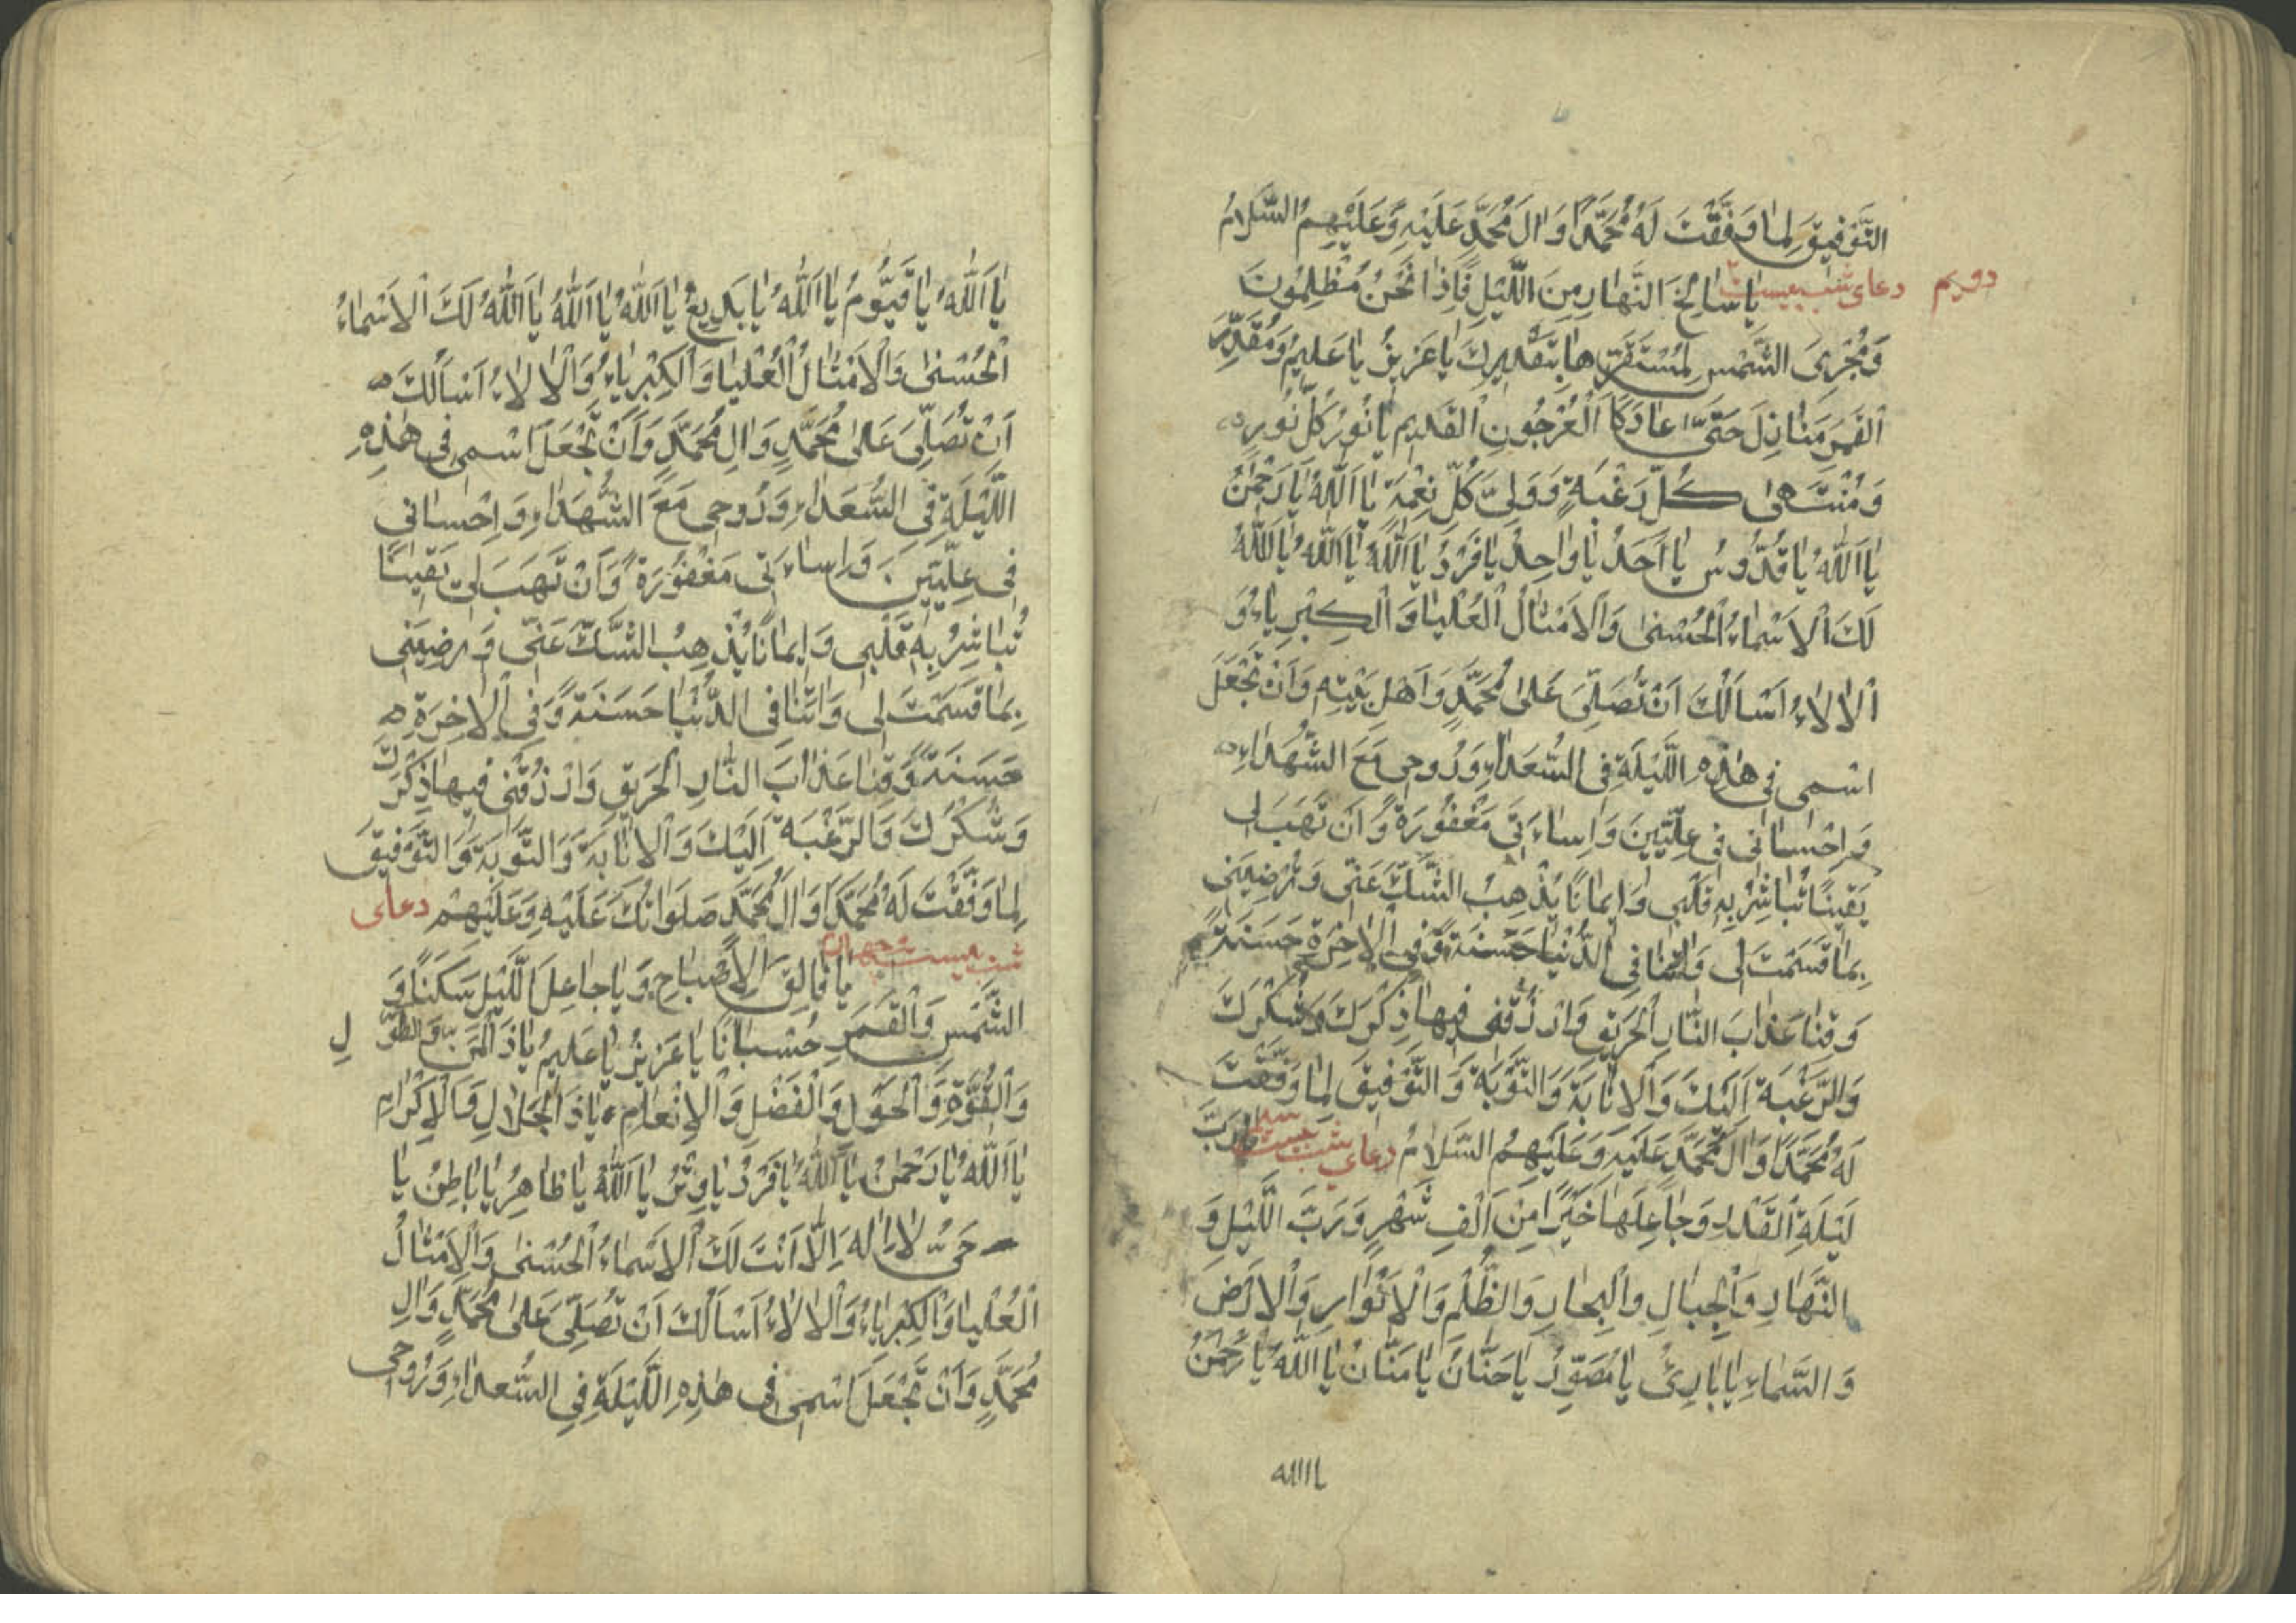 التَّوْفِيقَ لِمَا وَفَّقْتَ لَهُ مُحَمَّدًا وَالَ مُحَمَّدٍ عَلَيْهِ وَعَلَيْهِمُ السَّلَامُ
دعای شب بیست دویم يَا سَالِخَ النَّهَارِ مِنَ اللَّيْلِ فَإِذَا نَحْنُ مُظْلِمُونَ
وَمُجْرِىَ الشَّمْسِ لِمُسْتَقَرِّهَا بِتَقْدِيرِكَ يَا عَزِيزُ يَا عَلِيمُ وَمُقَدِّرَ
الْقَمَرِ مَنَازِلَ حَتَّى عَادَ كَالْعُرْجُونِ الْقَدِيمِ يَا نُورَ كُلِّ نُورٍ
وَمُنْتَهَى كُلِّ رَغْبَةٍ وَوَلِىَّ كُلِّ نِعْمَةٍ يَا اَللهُ يَا رَحْمٰنُ
يَا اَللهُ يَا قُدُّوسُ يَا اَحَدُ يَا وَاحِدُ يَا فَرْدُ يَا اَللهُ يَا اَللهُ يَا اَللهُ
لَكَ الْاَسْمَاءُ الْحُسْنٰى وَالْاَمْثَالُ الْعُلْيَا وَالْكِبْرِيَاءُ وَ
الْالَاءُ اَسْاَلُكَ اَنْ تُصَلِّىَ عَلٰى مُحَمَّدٍ وَاَهْلِ بَيْتِهِ وَاَنْ تَجْعَلَ
اسْمِى فِى هٰذِهِ اللَّيْلَةِ فِى السُّعَدَاءِ وَرُوحِى مَعَ الشُّهَدَاءِ
وَاِحْسَانِى فِى عِلِّيِّينَ وَاِسَاءَتِى مَغْفُورَةً وَاَنْ تَهَبَ لِى
يَقِينًا تُبَاشِرُ بِهِ قَلْبِى وَاِيمَانًا يُذْهِبُ الشَّكَّ عَنِّى وَتُرْضِيَنِى
بِمَا قَسَمْتَ لِى وَاتِنَا فِى الدُّنْيَا حَسَنَةً وَفِى الْاخِرَةِ حَسَنَةً
وَقِنَا عَذَابَ النَّارِ الْحَرِيقِ وَارْزُقْنِى فِيهَا ذِكْرَكَ وَشُكْرَكَ
وَالرَّغْبَةَ اِلَيْكَ وَالْاِنَابَةَ وَالتَّوْبَةَ وَالتَّوْفِيقَ لِمَا وَفَّقْتَ
لَهُ مُحَمَّدًا وَالَ مُحَمَّدٍ عَلَيْهِ وَعَلَيْهِمُ السَّلَامُ دعای شب بیست سیم يَا رَبَّ
لَيْلَةِ الْقَدْرِ وَجَاعِلَهَا خَيْرًا مِنْ اَلْفِ شَهْرٍ وَرَبَّ اللَّيْلِ وَ
النَّهَارِ وَالْجِبَالِ وَالْبِحَارِ وَالظُّلَمِ وَالْاَنْوَارِ وَالْاَرْضِ
وَالسَّمَاءِ يَا بَارِئُ يَا مُصَوِّرُ يَا حَنَّانُ يَا مَنَّانُ يَا اَللهُ يَا رَحْمٰنُ
يا الله
يَا اَللهُ يَا قَيُّومُ يَا اَللهُ يَا بَدِيعُ يَا اَللهُ يَا اَللهُ يَا اَللهُ لَكَ الْاَسْمَاءُ
الْحُسْنٰى وَالْاَمْثَالُ الْعُلْيَا وَالْكِبْرِيَاءُ وَالْالَاءُ اَسْاَلُكَ
اَنْ تُصَلِّىَ عَلٰى مُحَمَّدٍ وَالِ مُحَمَّدٍ وَاَنْ تَجْعَلَ اسْمِى فِى هٰذِهِ
اللَّيْلَةِ فِى السُّعَدَاءِ وَرُوحِى مَعَ الشُّهَدَاءِ وَاِحْسَانِى
فِى عِلِّيِّينَ وَاِسَاءَتِى مَغْفُورَةً وَاَنْ تَهَبَ لِى يَقِينًا
تُبَاشِرُ بِهِ قَلْبِى وَاِيمَانًا يُذْهِبُ الشَّكَّ عَنِّى وَتُرْضِيَنِى
بِمَا قَسَمْتَ لِى وَاتِنَا فِى الدُّنْيَا حَسَنَةً وَفِى الْاخِرَةِ
حَسَنَةً وَقِنَا عَذَابَ النَّارِ الْحَرِيقِ وَارْزُقْنِى فِيهَا ذِكْرَكَ
وَشُكْرَكَ وَالرَّغْبَةَ اِلَيْكَ وَالْاِنَابَةَ وَالتَّوْبَةَ وَالتَّوْفِيقَ
لِمَا وَفَّقْتَ لَهُ مُحَمَّدًا وَالَ مُحَمَّدٍ صَلَوَاتُكَ عَلَيْهِ وَعَلَيْهِمْ دعای
شب بیست چهارم يَا فَالِقَ الْاِصْبَاحِ وَيَا جَاعِلَ اللَّيْلِ سَكَنًا وَ
الشَّمْسِ وَالْقَمَرِ حُسْبَانًا يَا عَزِيزُ يَا عَلِيمُ يَا ذَا الْمَنِّ وَالطَّوْلِ
وَالْقُوَّةِ وَالْحَوْلِ وَالْفَضْلِ وَالْاِنْعَامِ يَا ذَا الْجَلَالِ وَالْاِكْرَامِ
يَا اَللهُ يَا رَحْمٰنُ يَا اَللهُ يَا فَرْدُ يَا وِتْرُ يَا اَللهُ يَا ظَاهِرُ يَا بَاطِنُ يَا
حَىُّ لَا اِلٰهَ اِلَّا اَنْتَ لَكَ الْاَسْمَاءُ الْحُسْنٰى وَالْاَمْثَالُ
الْعُلْيَا وَالْكِبْرِيَاءُ وَالْالَاءُ اَسْاَلُكَ اَنْ تُصَلِّىَ عَلٰى مُحَمَّدٍ وَالِ
مُحَمَّدٍ وَاَنْ تَجْعَلَ اسْمِى فِى هٰذِهِ اللَّيْلَةِ فِى السُّعَدَاءِ وَرُوحِى